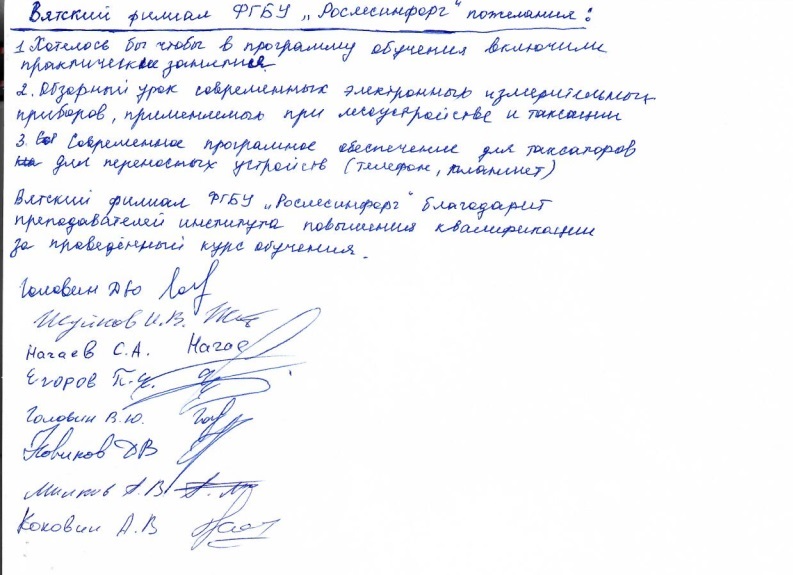 Вятский филиал ФГБУ „Рослесинфорг“ пожелания:
1 Хотелось бы чтобы в программу обучения включили
практические занятия.
2. Обзорный урок современных электронных измерительных
приборов, применяемых при лесоустройстве и таксации
3. Современное програмное обеспечение для таксаторов
для переностых устройств (телефон, планшет)
Вятский филиал ФГБУ „Рослесинфорг“ благодарит
преподавателей института повышения квалификации
за проведённый курс обучения.
Головин Д Ю
И.В.
Нагаев С.А. Нагае
Егоров П.
Головин В.Ю.
Новиков Д В
А.В
Коковин А.В